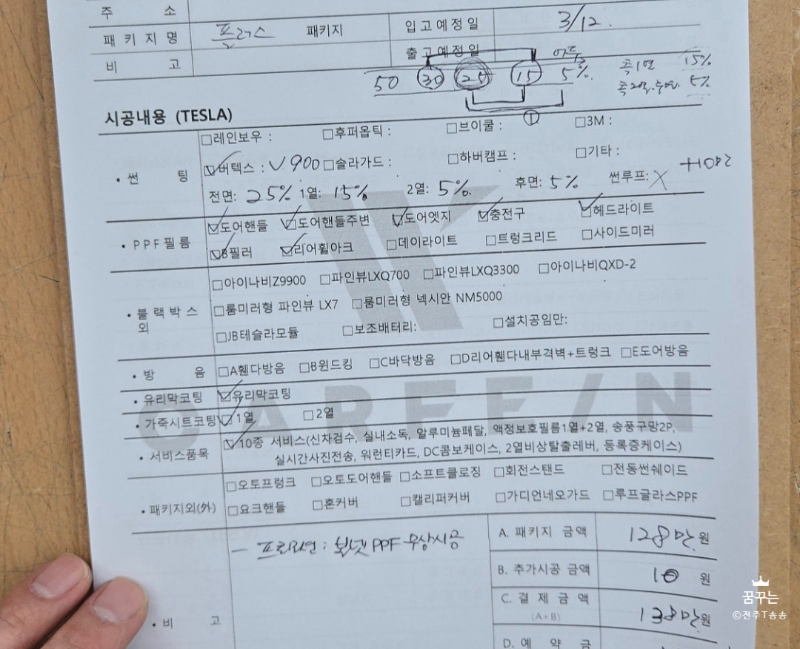 주 소
패키지명 플러스 패키지 입고예정일 3/12.
비 고 출고예정일
50 30 25 15 5%. 15%
① 5%
시공내용 (TESLA)
□레인보우 : □후퍼옵틱 : □브이쿨 : □3M :
• 썬 팅 ☑버텍스 : V900 □솔라가드 : □하버캠프 : □기타 :
전면: 25% 1열: 15% 2열: 5%. 후면: 5% 썬루프: X
• PPF필름 ☑도어핸들 ☑도어핸들주변 ☑도어엣지 ☑충전구 ☑헤드라이트
☑B필러 ☑리어휠아크 □데이라이트 □트렁크리드 □사이드미러
• 블랙박스 외 □아이나비Z9900 □파인뷰LXQ700 □파인뷰LXQ3300 □아이나비QXD-2
□룸미러형 파인뷰 LX7 □룸미러형 넥시안 NM5000
□JB테슬라모듈 □보조배터리: □설치공임만:
• 방 음 □A휀다방음 □B윈드킹 □C바닥방음 □D리어휀다내부격벽+트렁크 □E도어방음
• 유리막코팅 ☑유리막코팅
• 가죽시트코팅 ☑1열 □2열
• 서비스품목 ☑10종 서비스(신차검수, 실내소독, 알루미늄페달, 액정보호필름1열+2열, 송풍구망2P,
실시간사진전송, 워런티카드, DC콤보케이스, 2열비상탈출레버, 등록증케이스)
• 패키지외(外) □오토프렁크 □오토도어핸들 □소프트클로징 □회전스탠드 □전동썬쉐이드
□요크핸들 □혼커버 □캘리퍼커버 □가디언네오가드 □루프글라스PPF
• 비 고 - 프로모션 : 본넷 PPF 무상시공
A. 패키지 금액 128만원
B. 추가시공 금액 10 원
C. 결제금액 (A+B) 138만원
D. 예 약 금
CAREFIN
꿈꾸는
©전주T송송